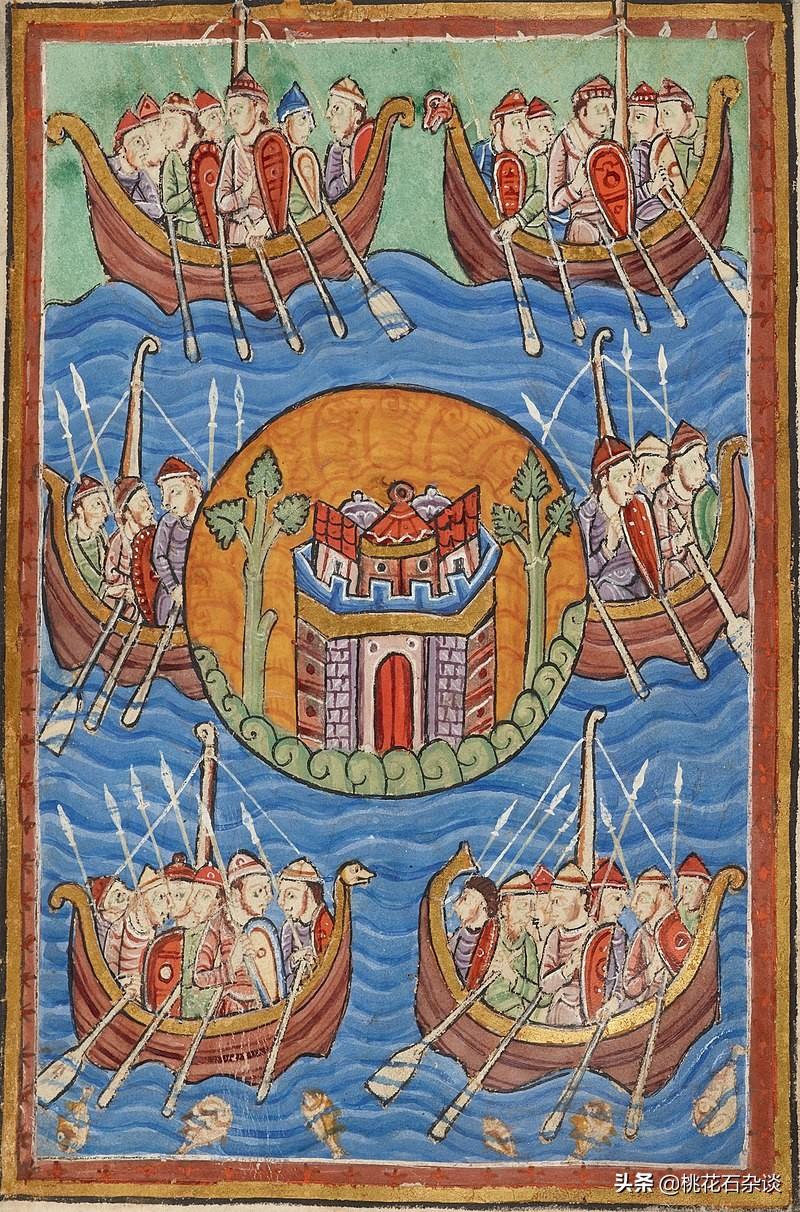 头条 @桃花石杂谈